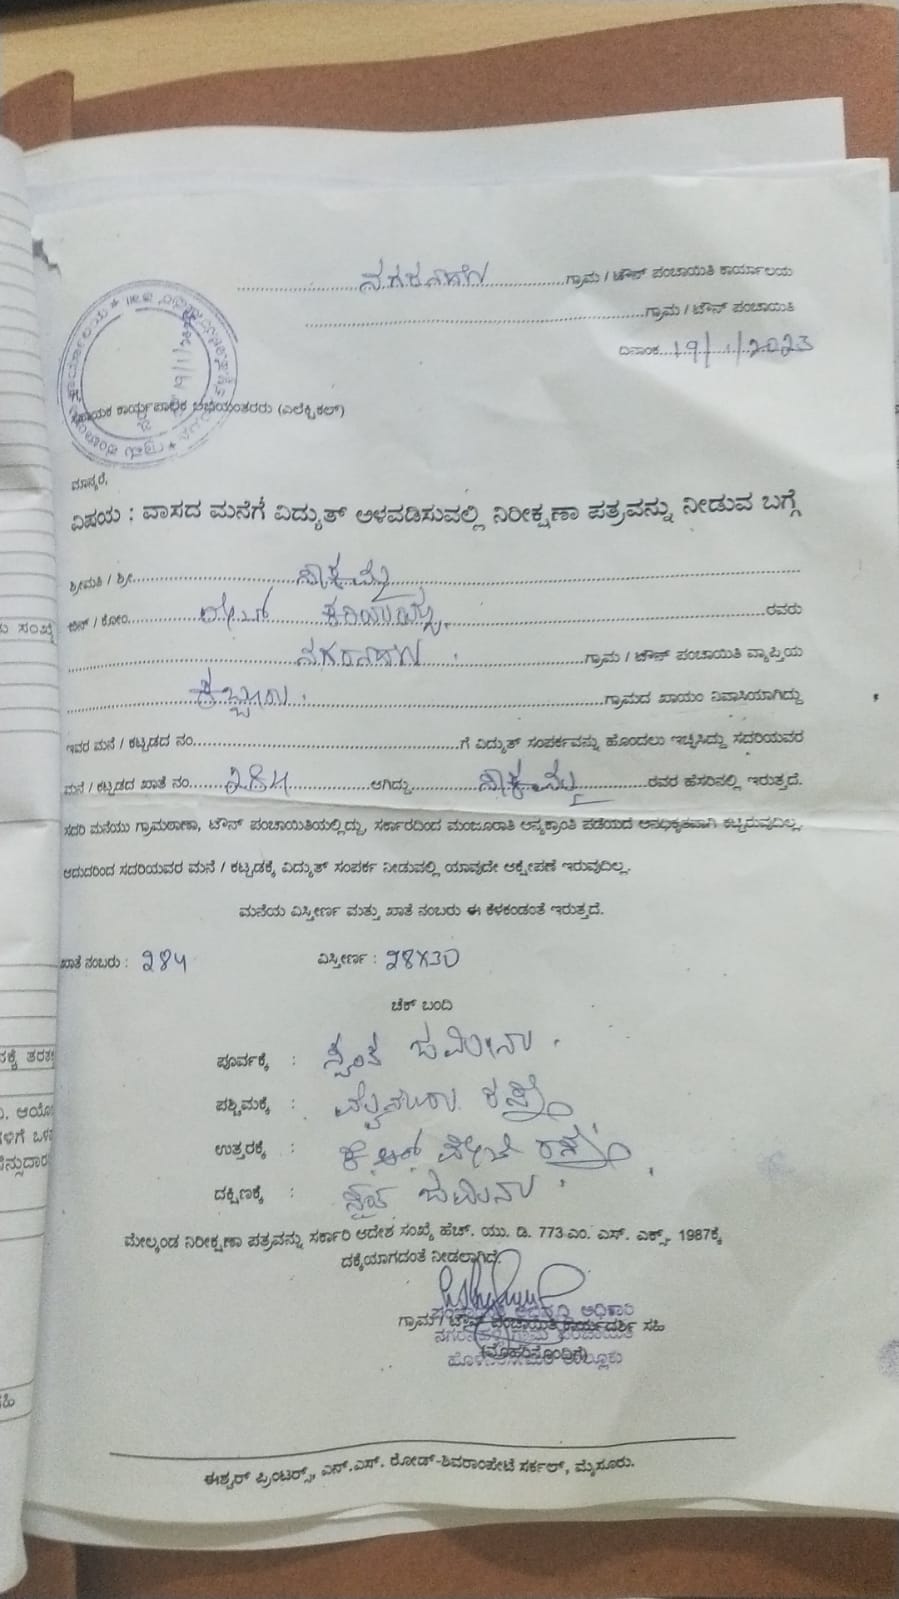 ನಗರನಹಳಿ ಗ್ರಾಮ / ಟೌನ್ ಪಂಚಾಯಿತಿ ಕಾರ್ಯಾಲಯ
ಗ್ರಾಮ / ಟೌನ್ ಪಂಚಾಯಿತಿ
ದಿನಾಂಕ 19/1/2023
ಸಹಾಯಕ ಕಾರ್ಯಪಾಲಕ ಅಭಿಯಂತರರು (ಎಲೆಕ್ಟ್ರಿಕಲ್)
ಮಾನ್ಯರೆ,
ವಿಷಯ : ವಾಸದ ಮನೆಗೆ ವಿದ್ಯುತ್ ಅಳವಡಿಸುವಲ್ಲಿ ನಿರೀಕ್ಷಣಾ ಪತ್ರವನ್ನು ನೀಡುವ ಬಗ್ಗೆ
ಶ್ರೀಮತಿ / ಶ್ರೀ
ಬಿನ್ / ಕೋಂ ರವರು
ನಗರನಹಳಿ ಗ್ರಾಮ / ಟೌನ್ ಪಂಚಾಯಿತಿ ವ್ಯಾಪ್ತಿಯ
ಗ್ರಾಮದ ಖಾಯಂ ನಿವಾಸಿಯಾಗಿದ್ದು
ಇವರ ಮನೆ / ಕಟ್ಟಡದ ನಂ ಗೆ ವಿದ್ಯುತ್ ಸಂಪರ್ಕವನ್ನು ಹೊಂದಲು ಇಚ್ಛಿಸಿದ್ದು ಸದರಿಯವರ
ಮನೆ / ಕಟ್ಟಡದ ಖಾತೆ ನಂ 284 ಆಗಿದ್ದು ರವರ ಹೆಸರಿನಲ್ಲಿ ಇರುತ್ತದೆ.
ಸದರಿ ಮನೆಯು ಗ್ರಾಮಠಾಣಾ, ಟೌನ್ ಪಂಚಾಯಿತಿಯಲ್ಲಿದ್ದು, ಸರ್ಕಾರದಿಂದ ಮಂಜೂರಾತಿ ಅನ್ಯಕ್ರಾಂತಿ ಪಡೆಯದೆ ಅನಧಿಕೃತವಾಗಿ ಕಟ್ಟಿರುವುದಿಲ್ಲ.
ಆದುದರಿಂದ ಸದರಿಯವರ ಮನೆ / ಕಟ್ಟಡಕ್ಕೆ ವಿದ್ಯುತ್ ಸಂಪರ್ಕ ನೀಡುವಲ್ಲಿ ಯಾವುದೇ ಆಕ್ಷೇಪಣೆ ಇರುವುದಿಲ್ಲ.
ಮನೆಯ ವಿಸ್ತೀರ್ಣ ಮತ್ತು ಖಾತೆ ನಂಬರು ಈ ಕೆಳಕಂಡಂತೆ ಇರುತ್ತದೆ.
ಖಾತೆ ನಂಬರು : 284 ವಿಸ್ತೀರ್ಣ : 28X30
ಚೆಕ್ ಬಂದಿ
ಪೂರ್ವಕ್ಕೆ : ಸ್ವಂತ ಜಮೀನು
ಪಶ್ಚಿಮಕ್ಕೆ : ರಸ್ತೆ
ಉತ್ತರಕ್ಕೆ : ಕೆ ಆರ್ ಪೇಟೆ ರಸ್ತೆ
ದಕ್ಷಿಣಕ್ಕೆ : ಜಮೀನು
ಮೇಲ್ಕಂಡ ನಿರೀಕ್ಷಣಾ ಪತ್ರವನ್ನು ಸರ್ಕಾರಿ ಆದೇಶ ಸಂಖ್ಯೆ ಹೆಚ್. ಯು. ಡಿ. 773 ಎಂ. ಎಸ್. ಎಕ್ಸ್. 1987ಕ್ಕೆ
ದಕ್ಕೆಯಾಗದಂತೆ ನೀಡಲಾಗಿದೆ.
ಗ್ರಾಮ / ಟೌನ್ ಪಂಚಾಯಿತಿ ಕಾರ್ಯದರ್ಶಿ ಸಹಿ
(ಮೊಹರಿನೊಂದಿಗೆ)
ಈಶ್ವರ್ ಪ್ರಿಂಟರ್ಸ್, ಎನ್.ಎಸ್. ರೋಡ್-ಶಿವರಾಂಪೇಟೆ ಸರ್ಕಲ್, ಮೈಸೂರು.